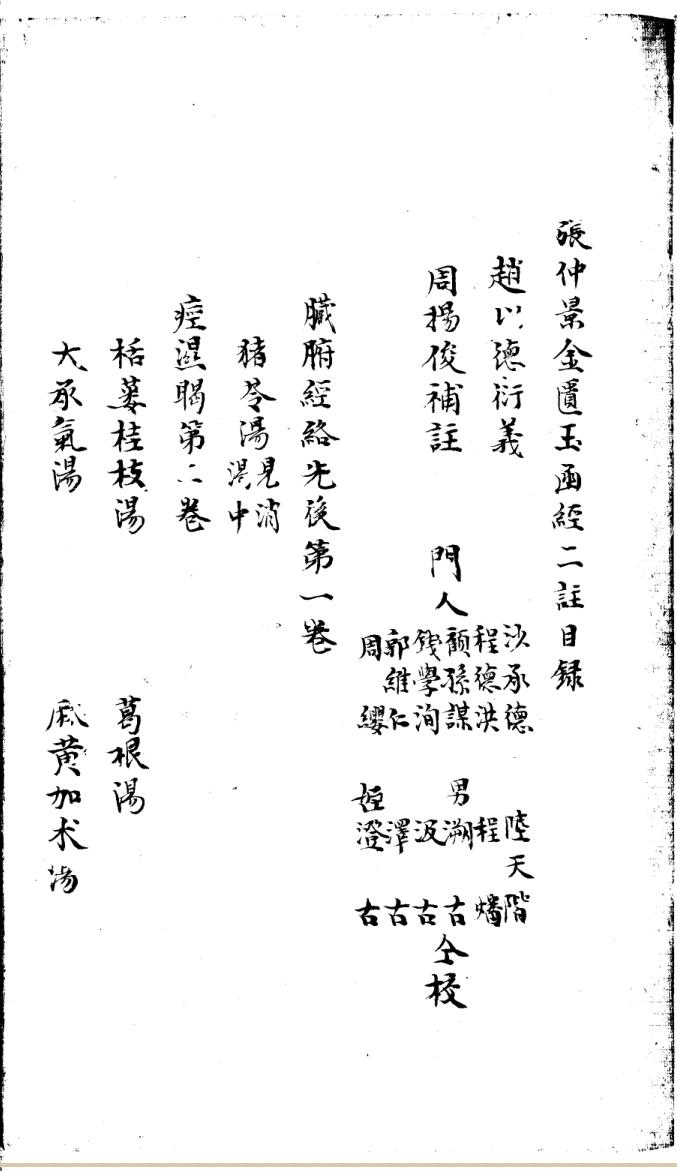 張仲景金匱玉函經二註目録
趙以德衍義
周揚俊補註
門人
沙承德 陸天階
程德洪 程 燔
顏孫謀 男溯古
錢學洵 汲古
郭維仁 澤古
周 纓 姪澄古
仝校
臟腑經絡先後第一卷
猪苓湯見消渴中
痓濕暍第二卷
栝蔞桂枝湯 葛根湯
大承氣湯 麻黄加朮湯